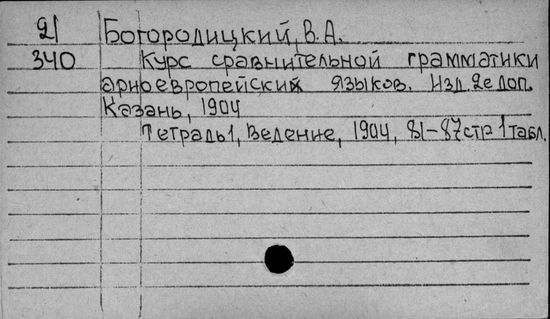 21 Богородицкий, В.А.
340 Курс сравнительной грамматики
ариоевропейских языков. Изд. 2е доп.
Казань, 1904
Тетрадь 1, Ведение, 1904, 81-87 стр 1 табл.